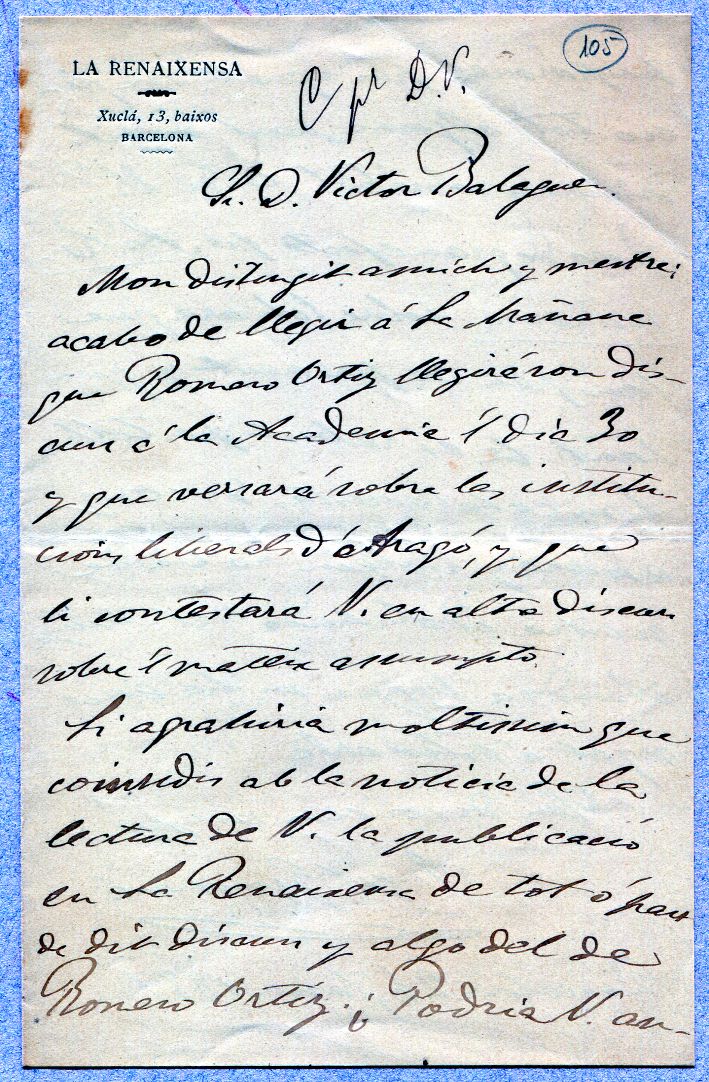 105
LA RENAIXENSA
Xuclá, 13, baixos
BARCELONA
C pr D.V.
Sr. D. Victor Balaguer.
Mon distingit amich y mestre:
acabo de llegir á La Mañana
que Romero Ortiz llegirá son dis-
curs á la Academia l dia 30
y que versará sobre las institu-
cions liberals d'Aragó, y que
li contestará V. en altre discurs
sobre l mateix assumpto.
Li agrahiria moltissim que
coinsedis ab la noticia de la
lectura de V. la publicació
en La Renaixensa de tot ó part
de dit discurs y algo del de
Romero Ortiz. ¿Podria V. an-